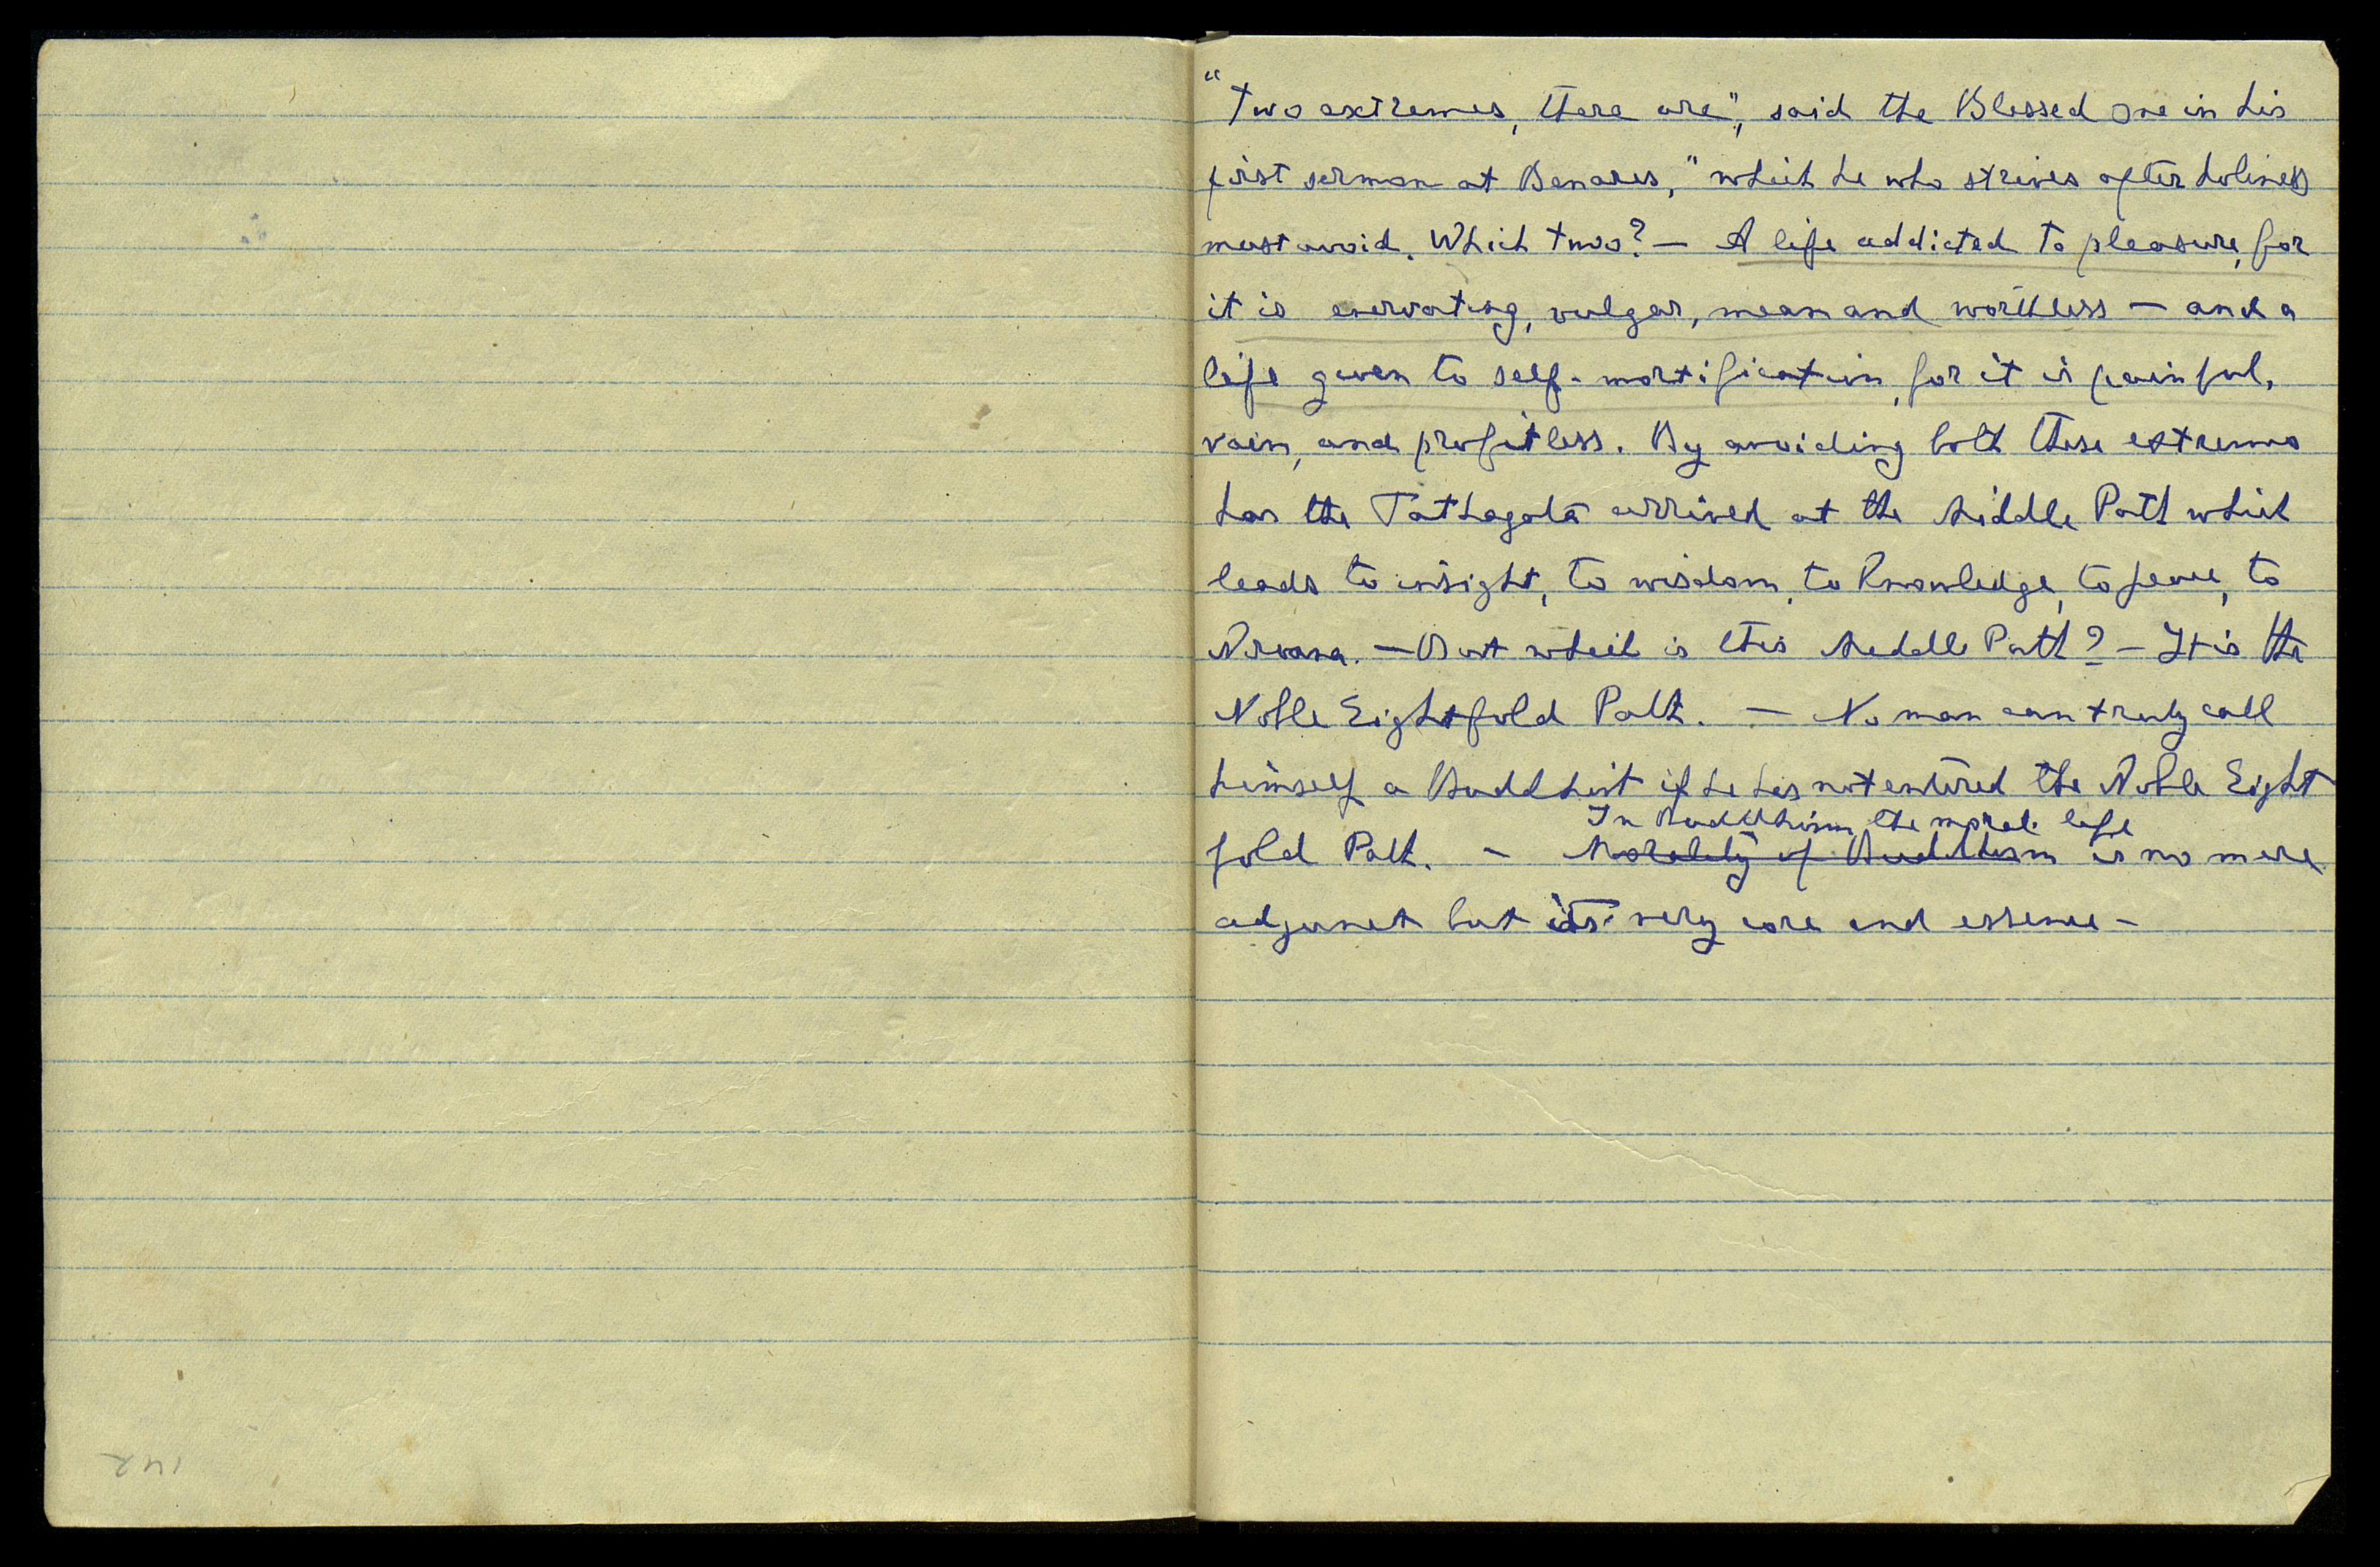 "Two extremes, there are", said the Blessed One in his
first sermon at Benares, "which he who strives after holiness
must avoid. Which two? — A life addicted to pleasure, for
it is enervating, vulgar, mean and worthless — and a
life given to self-mortification, for it is painful,
vain, and profitless. By avoiding both these extremes
has the Tathagata arrived at the Middle Path which
leads to insight, to wisdom, to knowledge, to peace, to
Nirvana. — But which is this Middle Path? — It is the
Noble Eightfold Path. — No man can truly call
himself a Buddhist if he has not entered the Noble Eight
In Buddhism, the moral life
fold Path. — Morality of Buddhism is no mere
adjunct but its very core and essence —
142